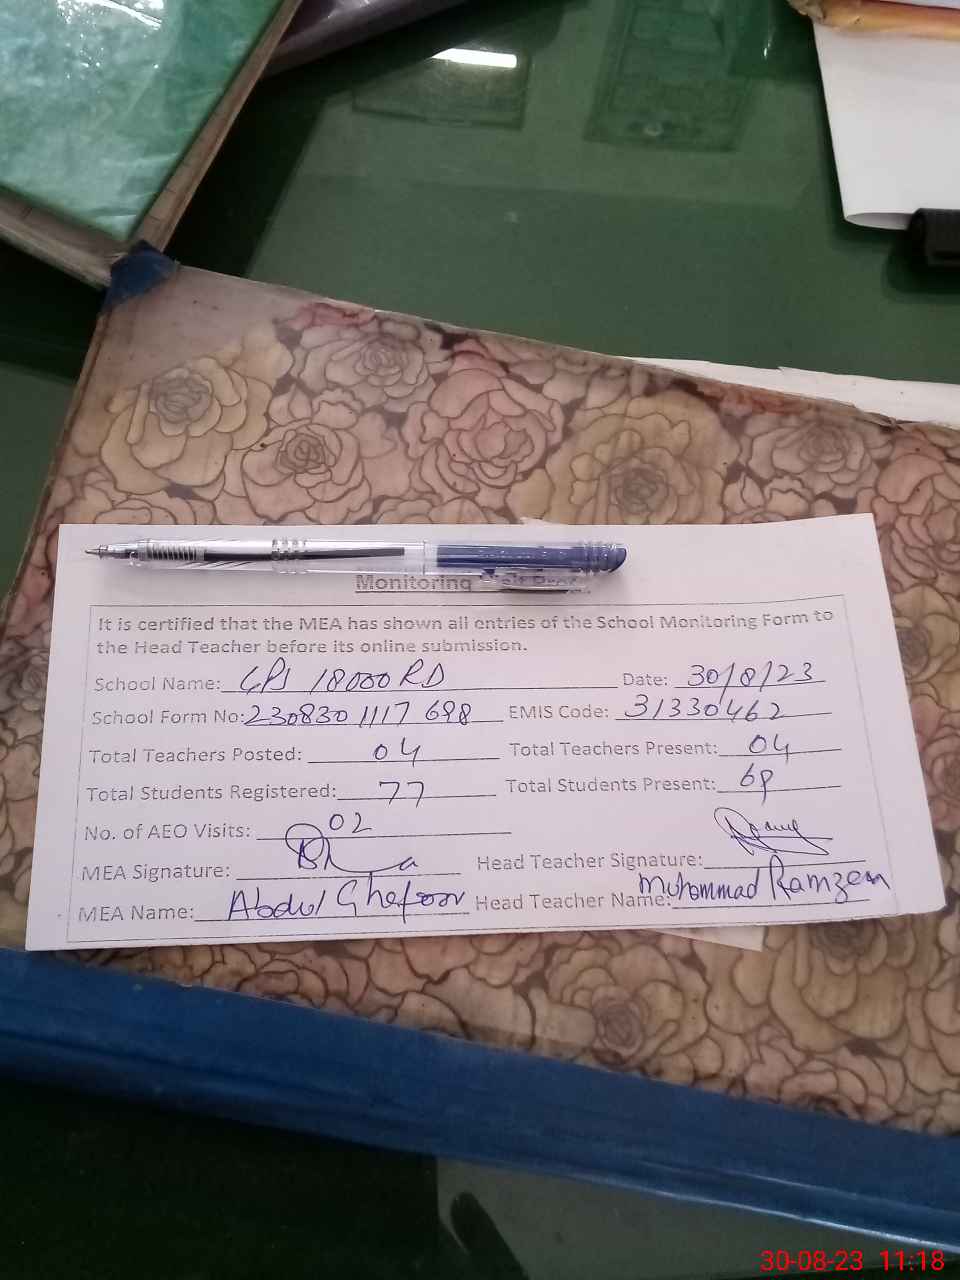 Monitoring Visit
It is certified that the MEA has shown all entries of the School Monitoring Form to
the Head Teacher before its online submission.
School Name: GPS 18000 RD Date: 30/8/23
School Form No: 230830 1117 698 EMIS Code: 31330462
Total Teachers Posted: 04 Total Teachers Present: 04
Total Students Registered: 77 Total Students Present:
No. of AEO Visits: 02
MEA Signature: Head Teacher Signature:
MEA Name: Abdul Ghafoor Head Teacher Name: Muhammad Ramzan
30-08-23 11:18